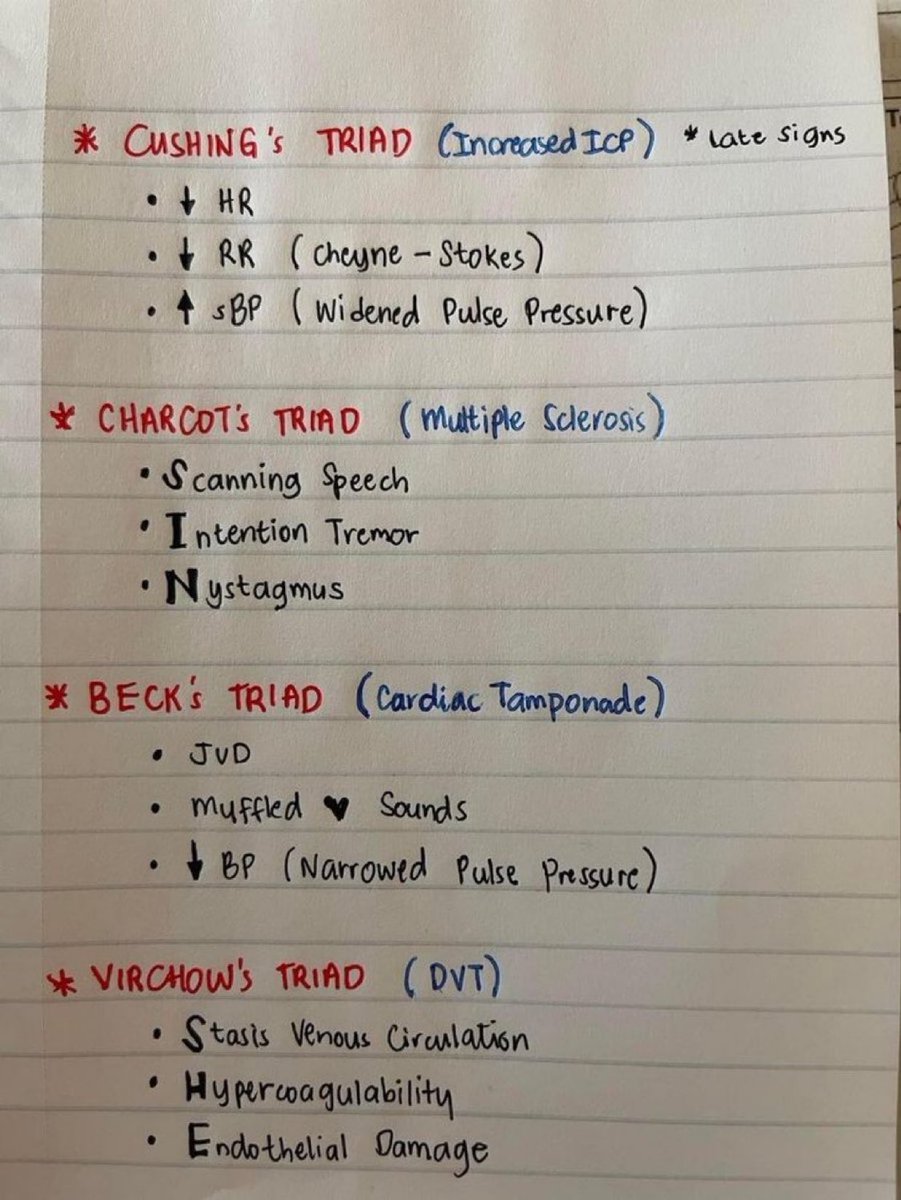 * CUSHING's TRIAD (Increased ICP) * Late signs
• ↓ HR
• ↓ RR (Cheyne-Stokes)
• ↑ sBP (Widened Pulse Pressure)
* CHARCOT's TRIAD (Multiple Sclerosis)
• Scanning Speech
• Intention Tremor
• Nystagmus
* BECK's TRIAD (Cardiac Tamponade)
• JVD
• Muffled ♥ Sounds
• ↓ BP (Narrowed Pulse Pressure)
* VIRCHOW's TRIAD (DVT)
• Stasis Venous Circulation
• Hypercoagulability
• Endothelial Damage